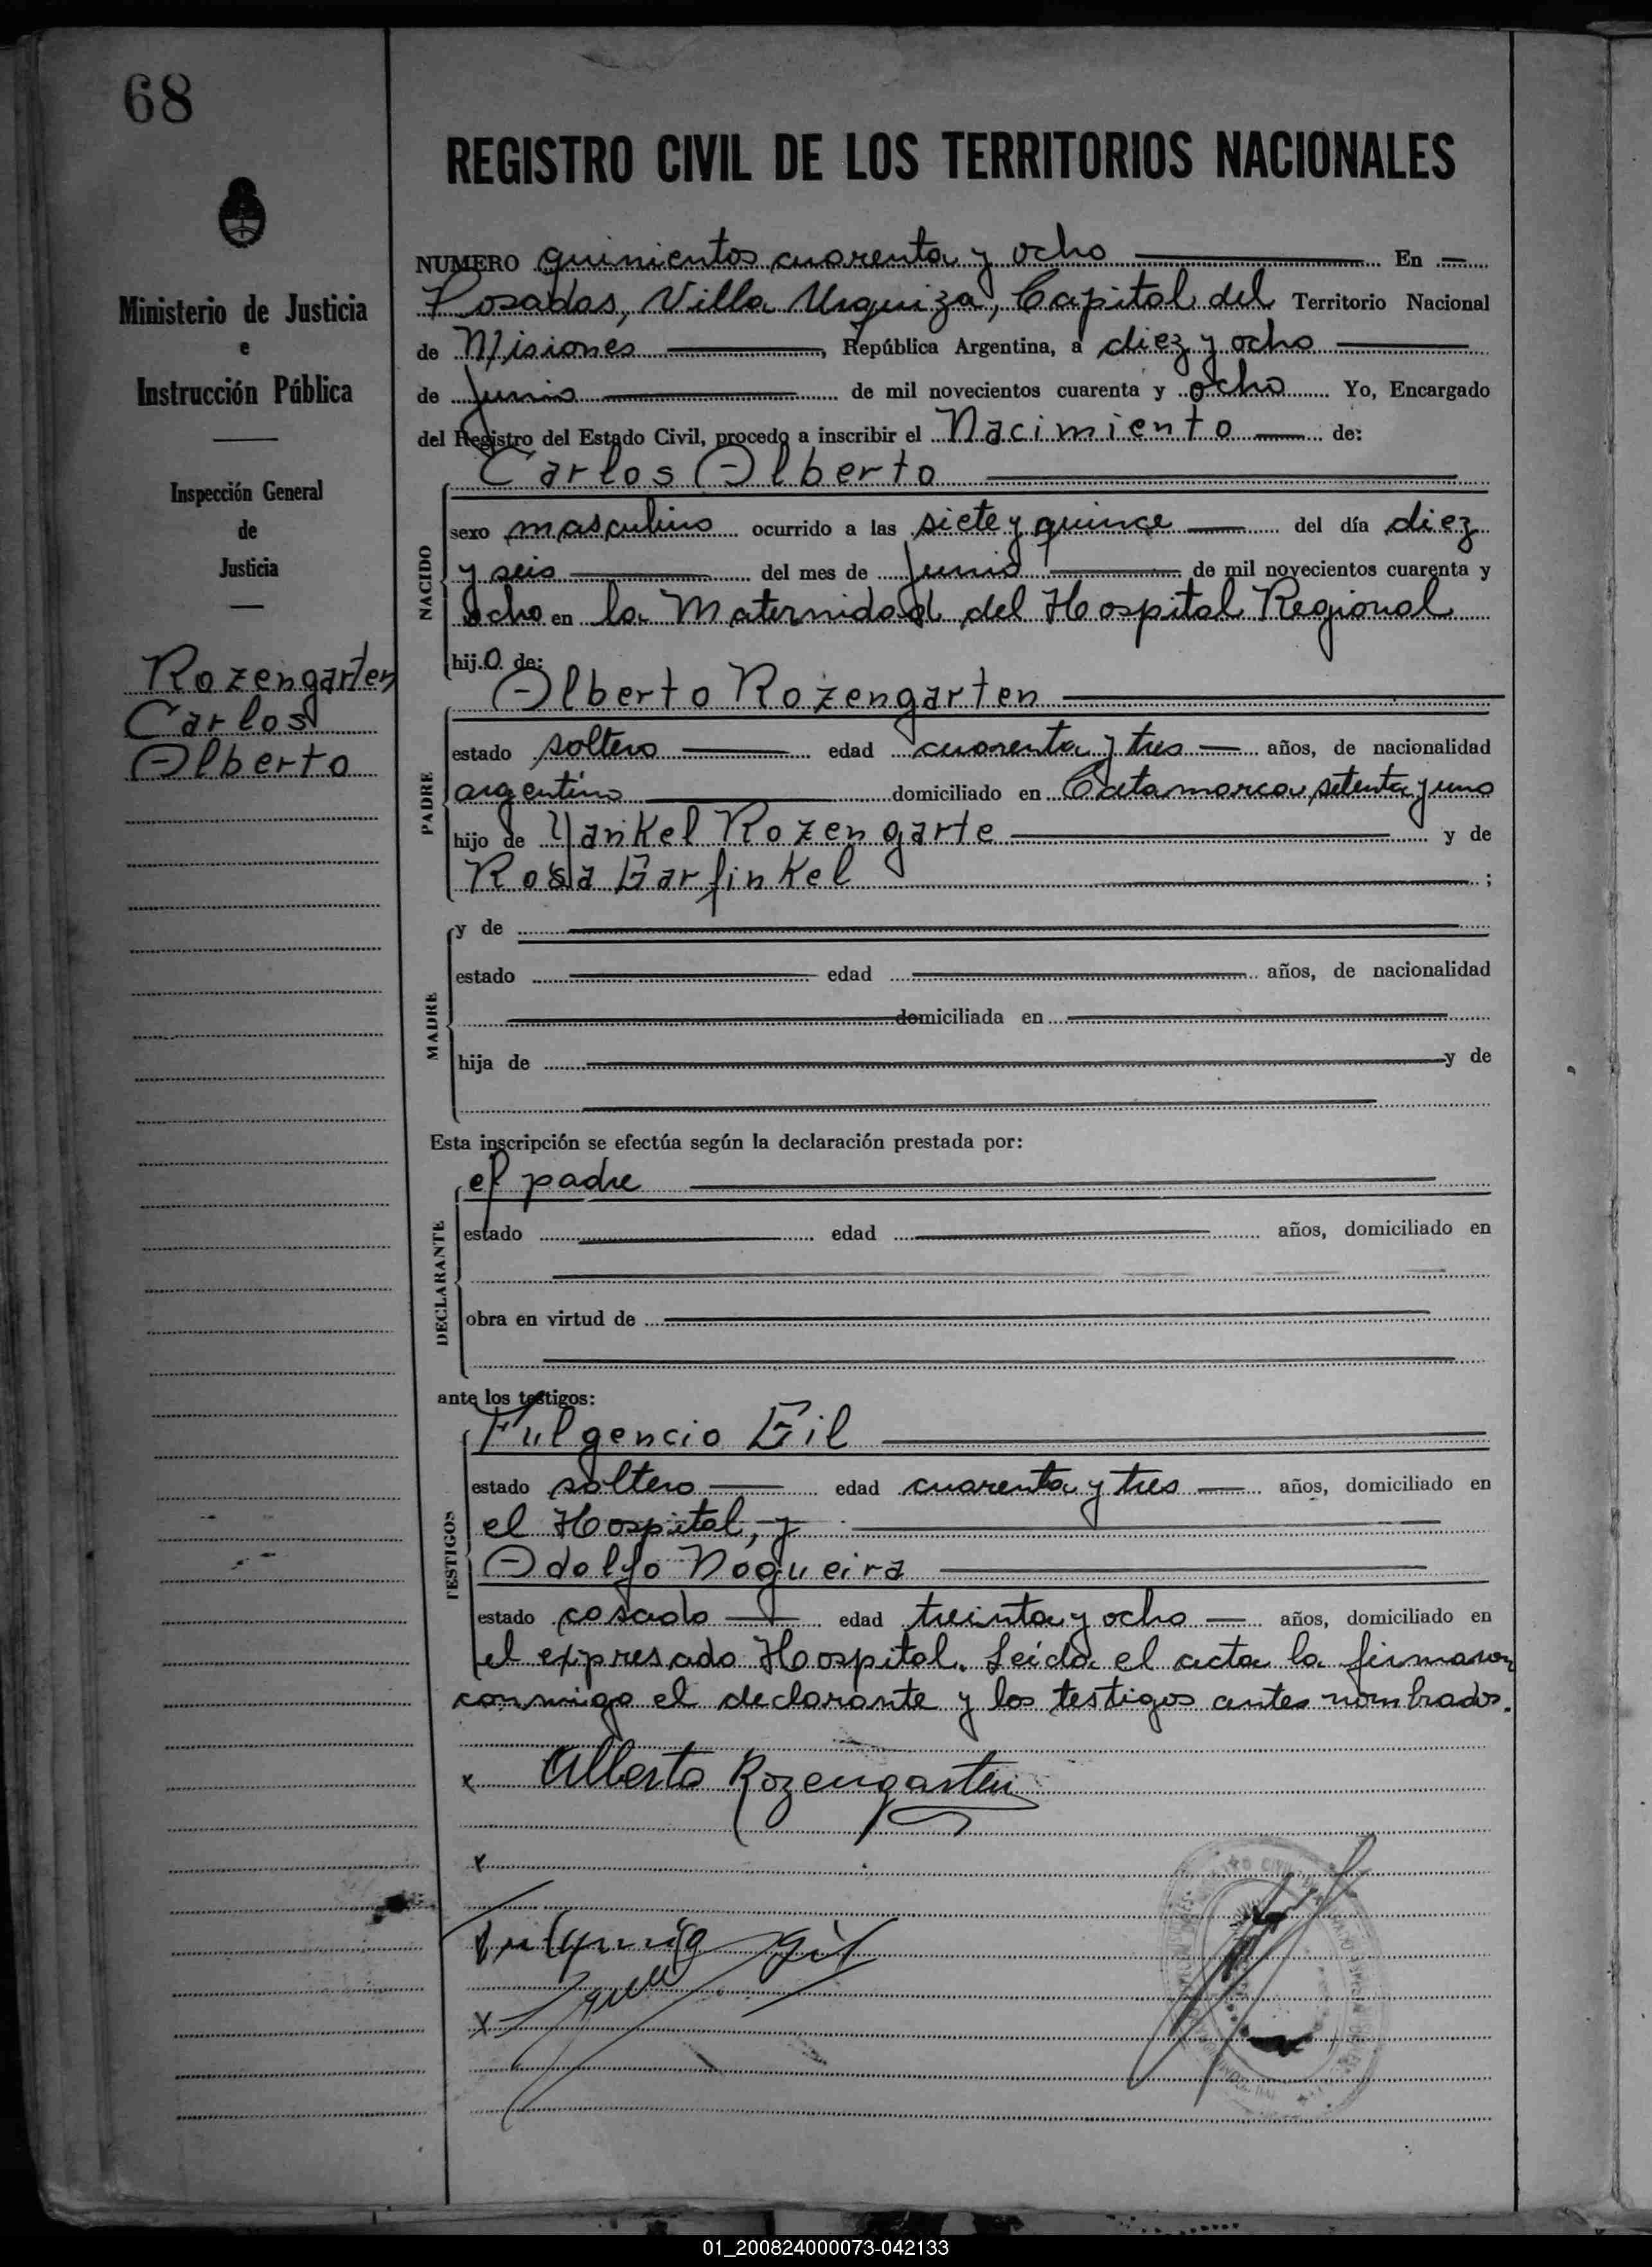 68
REGISTRO CIVIL DE LOS TERRITORIOS NACIONALES
Ministerio de Justicia
e
Instrucción Pública
Inspección General
de
Justicia
Rozengarten
Carlos
Alberto
NUMERO quinientos cuarenta y ocho En
Posadas, Villa Urquiza, Capital del Territorio Nacional
de Misiones, República Argentina, a diez y ocho
de junio de mil novecientos cuarenta y ocho Yo, Encargado
del Registro del Estado Civil, procedo a inscribir el Nacimiento de:
Carlos Alberto
NACIDO
sexo masculino ocurrido a las siete y quince del día diez
y seis del mes de junio de mil novecientos cuarenta y
ocho en la Maternidad del Hospital Regional
hij.o de:
Alberto Rozengarten
PADRE
estado soltero edad cuarenta y tres años, de nacionalidad
argentino domiciliado en Catamarca setenta y uno
hijo de Yankel Rozengarte y de
Rosa Garfinkel ;
MADRE
y de
estado edad años, de nacionalidad
domiciliada en
hija de y de
Esta inscripción se efectúa según la declaración prestada por:
el padre
DECLARANTE
estado edad años, domiciliado en
obra en virtud de
ante los testigos:
Fulgencio Gil
TESTIGOS
estado soltero edad cuarenta y tres años, domiciliado en
el Hospital, y
Adolfo Nogueira
estado casado edad treinta y ocho años, domiciliado en
el expresado Hospital. Leída el acta la firmaron
conmigo el declarante y los testigos antes nombrados.
x Alberto Rozengarten
x
Fulgencio Gil
x
01_200824000073-042133